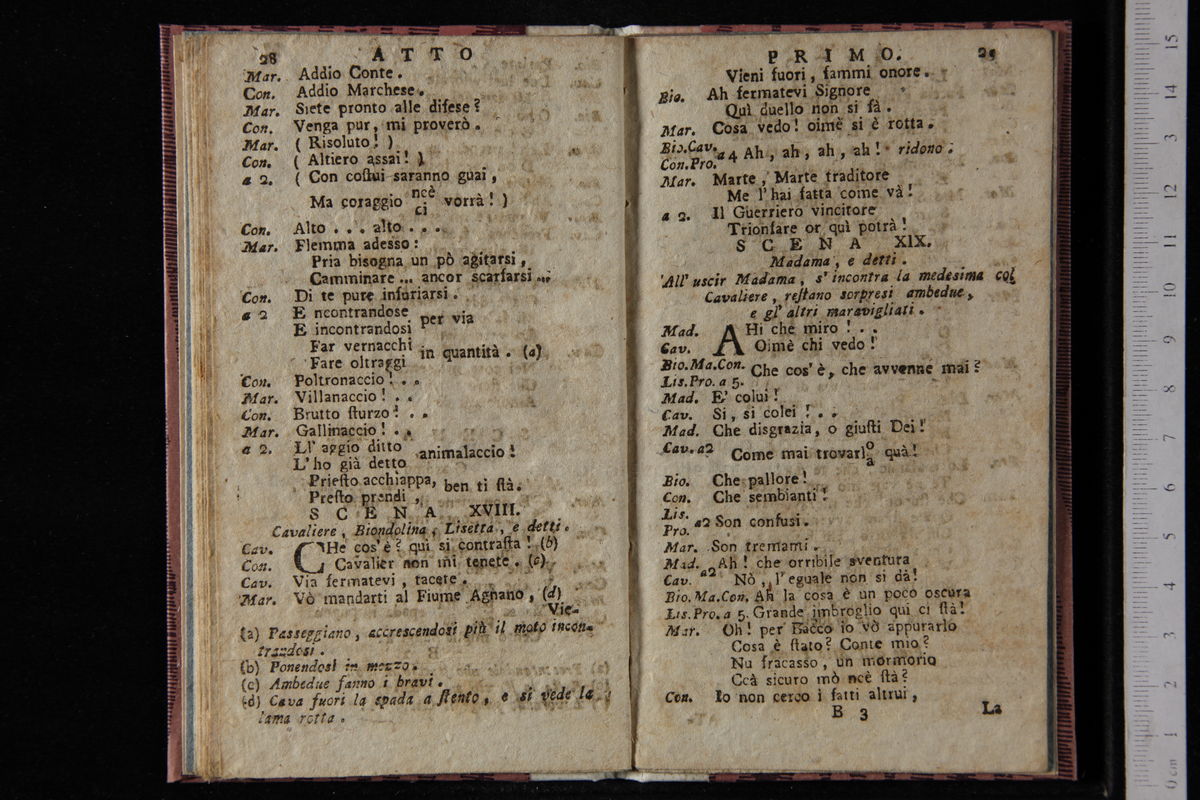 28 ATTO
Mar. Addio Conte.
Con. Addio Marchese.
Mar. Siete pronto alle difese?
Con. Venga pur, mi proverò.
Mar. ( Risoluto! )
Con. ( Altiero assai! )
a 2. ( Con coſtui saranno guai,
Ma coraggio ncè / ci vorrà! )
Con. Alto . . . alto . . .
Mar. Flemma adesso:
Pria bisogna un pò agitarsi,
Camminare ... ancor scarfarsi ...
Con. Di te pure infuriarsi.
a 2 E ncontrandose
E incontrandosi per via
Far vernacchi
Fare oltraggi in quantità. (a)
Con. Poltronaccio! . .
Mar. Villanaccio! . .
Con. Brutto ſturzo! . .
Mar. Gallinaccio! . .
a 2. Ll' aggio ditto
L' ho già detto animalaccio!
Prieſto acchiappa,
Preſto prendi, ben ti ſtà.
SCENA XVIII.
Cavaliere, Biondolina, Lisetta, e detti.
Cav. CHe cos' è? qui si contraſta! (b)
Con. Cavalier non mi tenete. (c)
Cav. Via fermatevi, tacete.
Mar. Vò mandarti al Fiume Agnano, (d)
Vie-
(a) Passeggiano, accrescendosi più il moto incon-
trandosi.
(b) Ponendosi in mezzo.
(c) Ambedue fanno i bravi.
(d) Cava fuori la spada a ſtento, e si vede la
lama rotta.
PRIMO. 29
Vieni fuori, fammi onore.
Bio. Ah fermatevi Signore
Quì duello non si fà.
Mar. Cosa vedo! oimè si è rotta.
Bio.Cav.
Con.Pro. a 4 Ah, ah, ah, ah! ridono.
Mar. Marte, Marte traditore
Me l' hai fatta come và!
a 2. Il Guerriero vincitore
Trionfare or quì potrà!
SCENA XIX.
Madama, e detti.
All' uscir Madama, s' incontra la medesima col
Cavaliere, reſtano sorpresi ambedue,
e gl' altri maravigliati.
Mad. AHi che miro! . .
Cav. Oimè chi vedo!
Bio.Ma.Con.
Lis.Pro. a 5. Che cos' è, che avvenne mai?
Mad. E' colui!
Cav. Si, si colei! . .
Mad. Che disgrazia, o giuſti Dei!
Cav. a2 Come mai trovarl o / a quà!
Bio. Che pallore!
Con. Che sembianti!
Lis.
Pro. a2 Son confusi.
Mar. Son tremanti.
Mad. Ah! che orribile sventura
Cav. a2 Nò, l' eguale non si dà!
Bio.Ma.Con. Ah la cosa è un poco oscura
Lis.Pro. a 5. Grande imbroglio qui ci ſtà!
Mar. Oh! per Bacco io vò appurarlo
Cosa è ſtato? Conte mio?
Nu fracasso, un mormorio
Ccà sicuro mò ncè ſtà?
Con. Io non cerco i fatti altrui,
B 3 La
0 cm 1 2 3 4 5 6 7 8 9 10 11 12 13 14 15